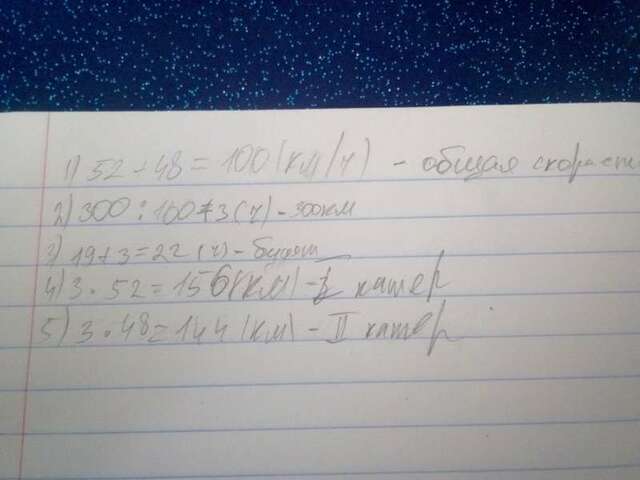 1) 52+48=100(км/ч) - общая скорасть
2) 300:100=3(ч) - 300км
3) 19+3=22 (ч) - будет
4) 3·52=156(км) - I катер
5) 3·48=144(км) - II катер